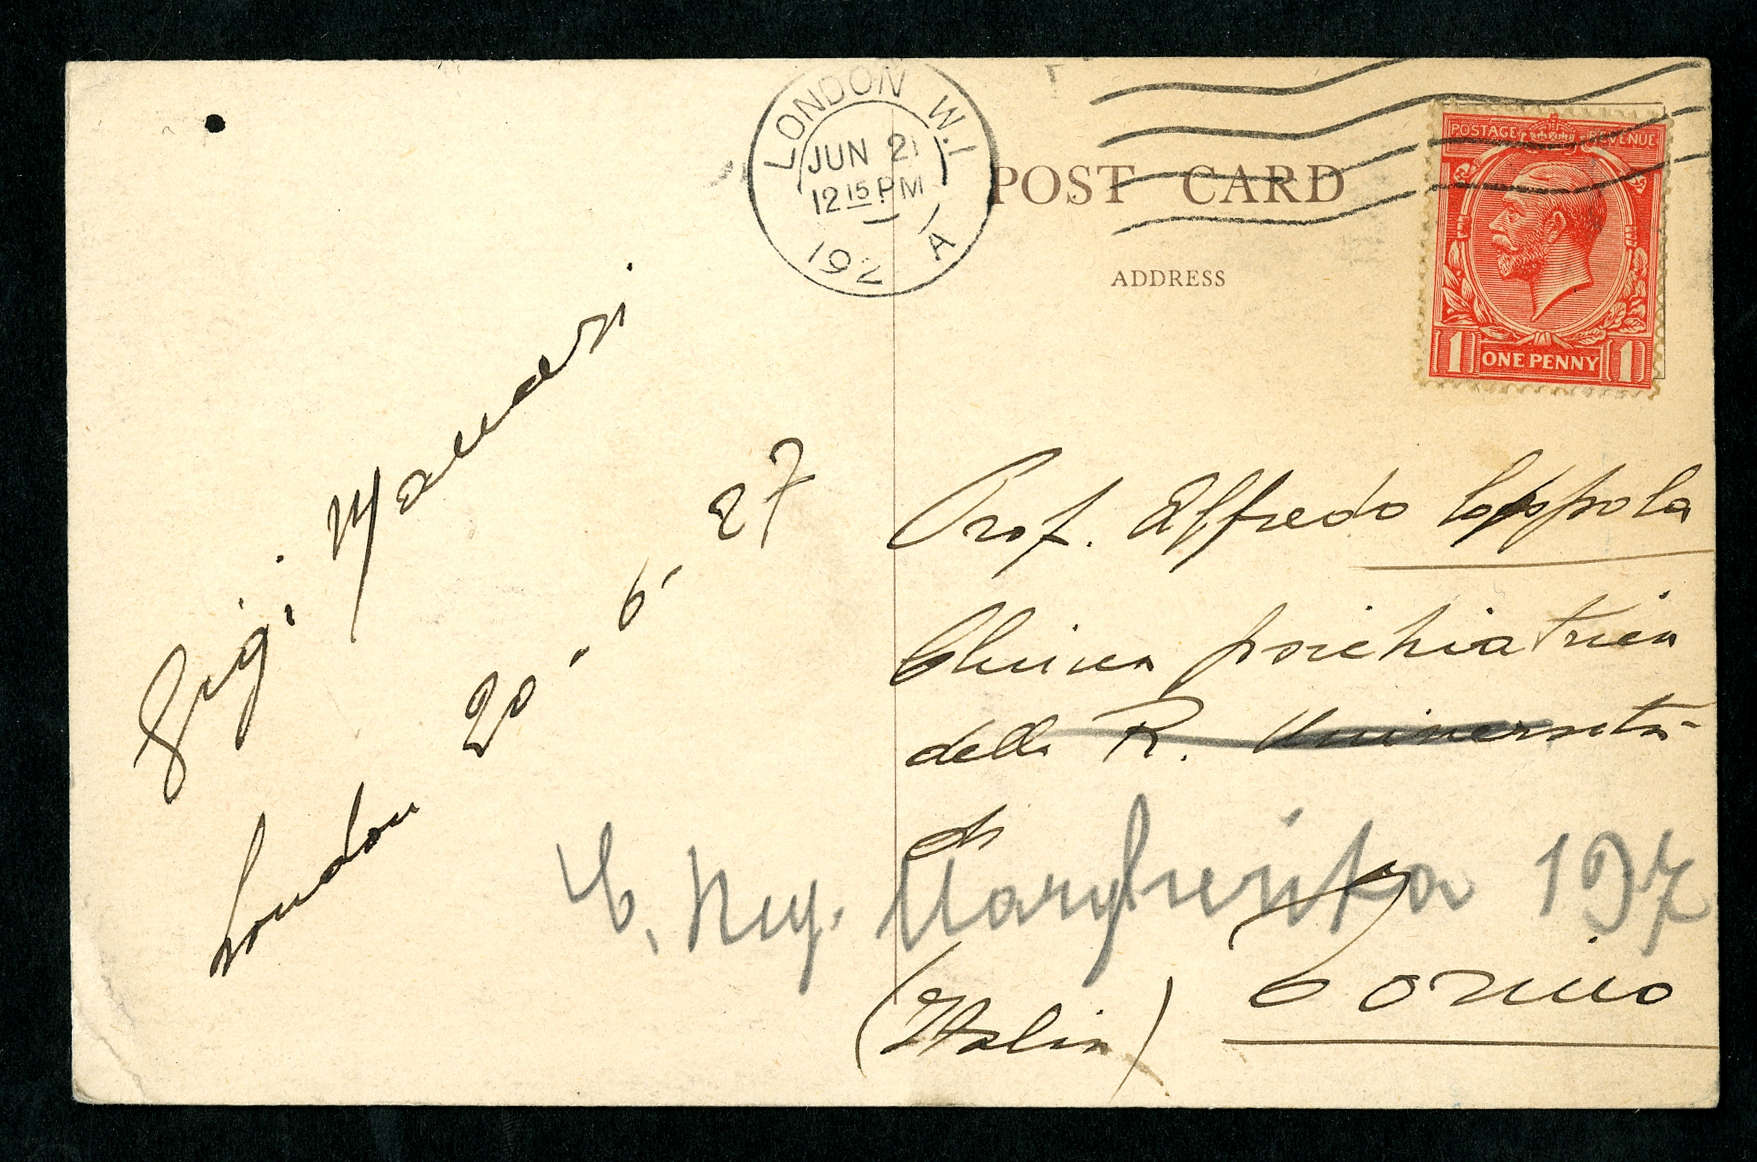 LONDON W.1
JUN 21
12 15 PM
192
A
POST CARD
ADDRESS
POSTAGE REVENUE
1 ONE PENNY 1
London 20-6-27
Prof. Alfredo Coppola
Clinica psichiatrica
della R. Università
di
C. Reg. Margherita 197
Torino
(Italia)